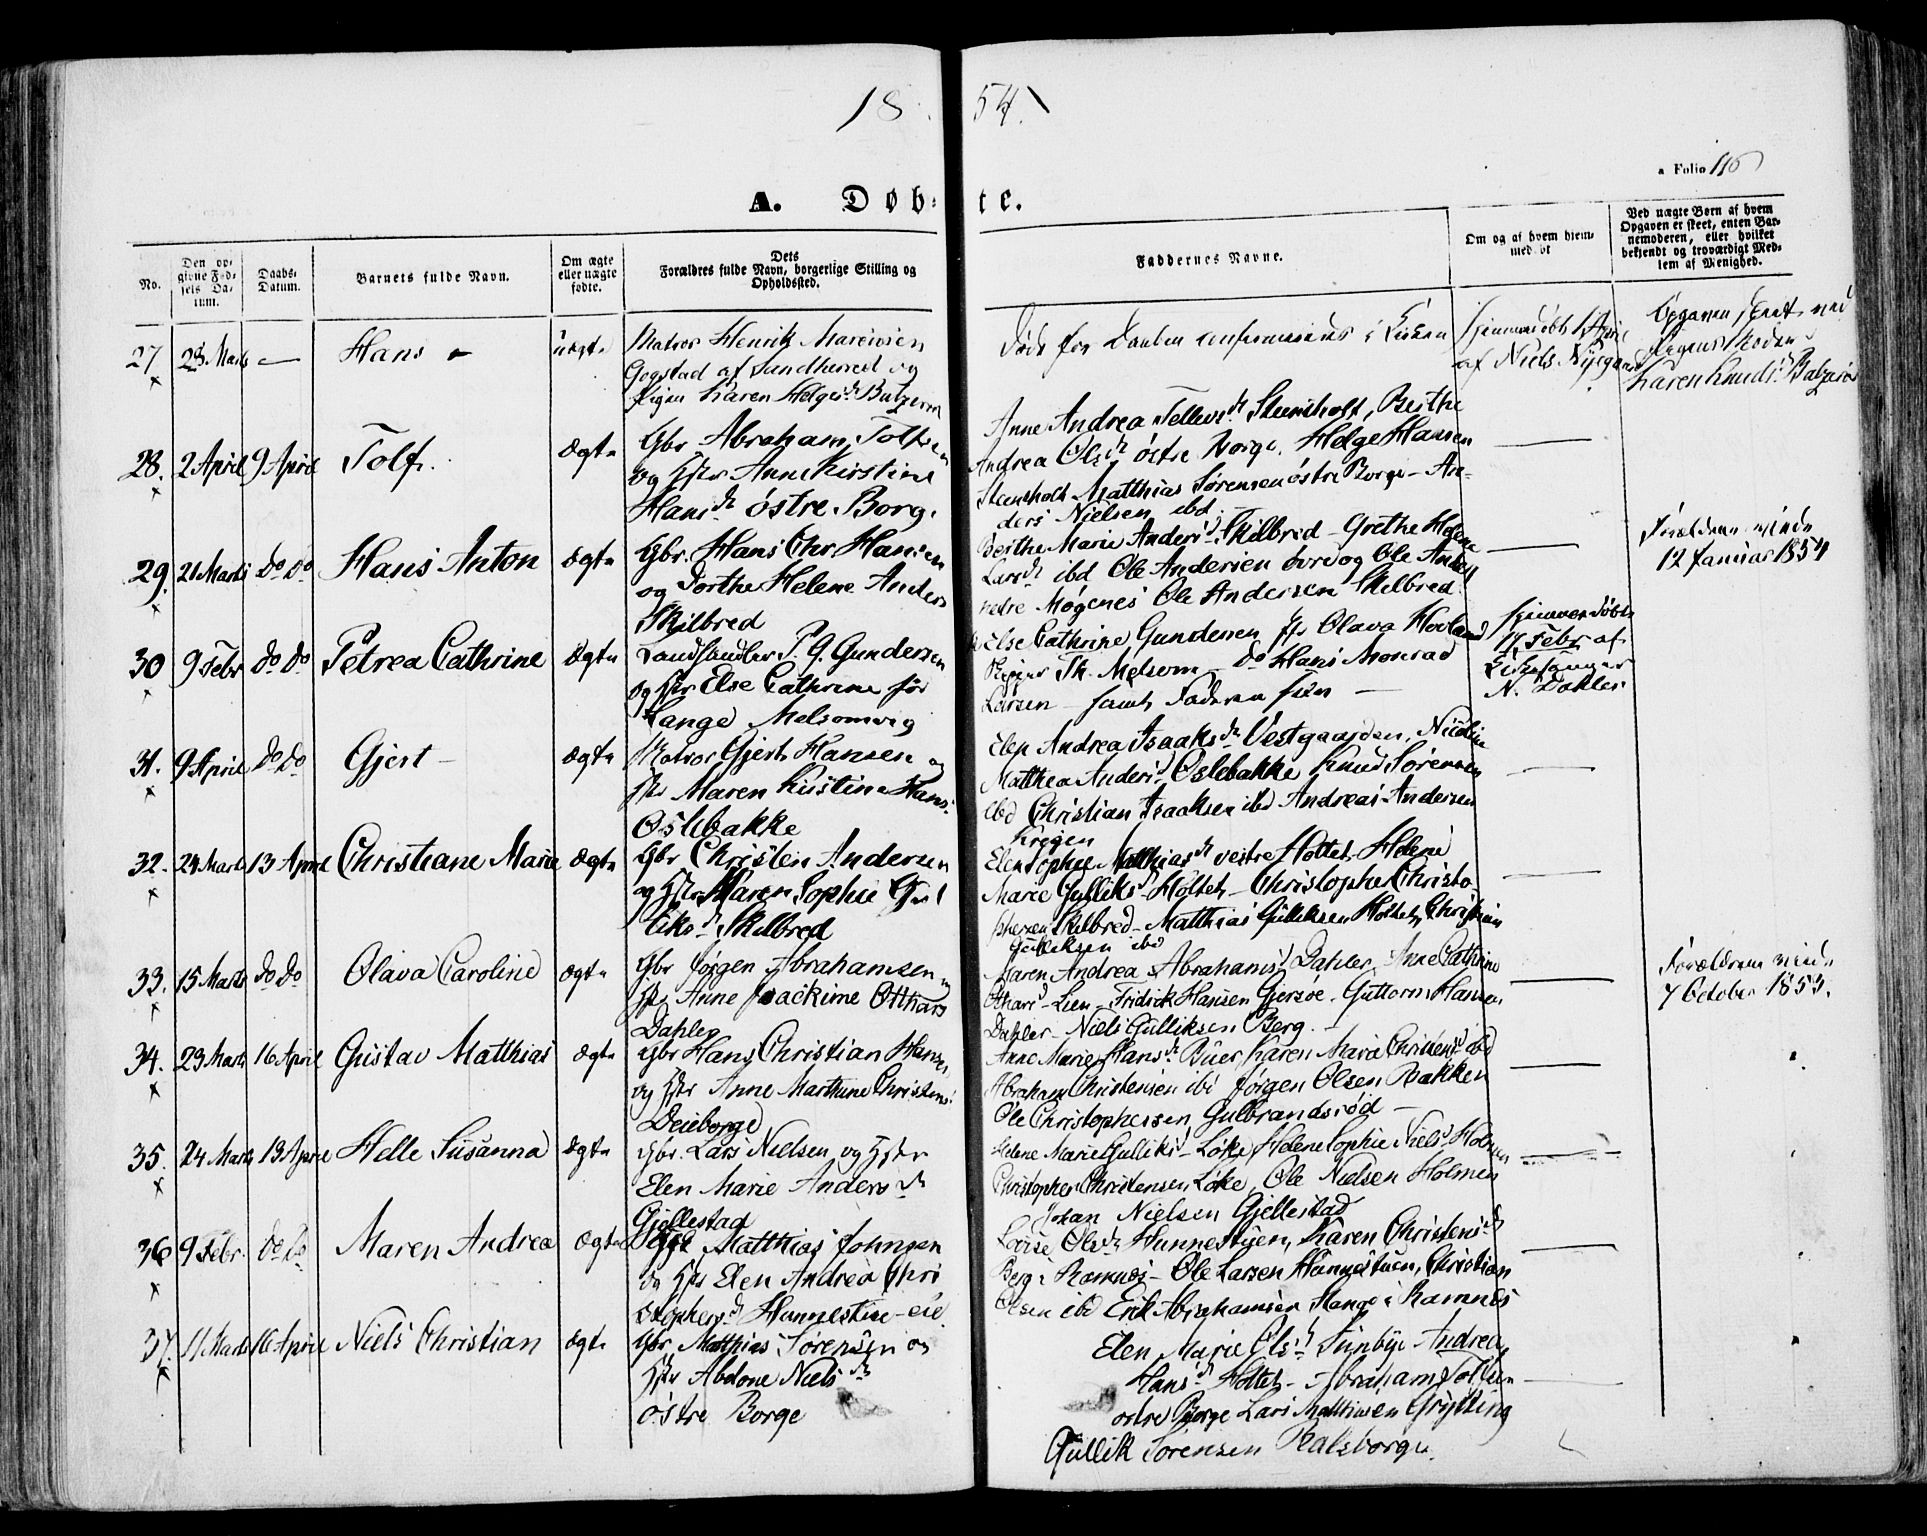 18 54.
a Folio 116
A. Døb- te.
No.
Den op-
givne Fød-
sels Da-
tum.
Daabs-
Datum.
Barnets fulde Navn.
Om ægte
eller uægte
fødte.
Dets
Forældres fulde Navn, borgerlige Stilling og
Opholdssted.
Faddernes Navne.
Om og af hvem hjem-
medøbt
Ved uægte Børn af hvem
Opgaven er skeet, enten Bar-
nemoderen, eller hvilket
bekjendt og troværdigt Med-
lem af Menighed.
27 23 Marts — Hans — uægte
Matros Henrik
Gogstad af Sandherred og
Pigen Karen Helges d.
Døde før Daaben i Kirken
Hjemmedøbt 1 April
af Niels
Opgaven skeet ved
Pigens Moder
Karen Knuds d.
28. 2 April 9 April Tolf. Ægte
Gbr Abraham Tolfsen
og Hstr Anne Kirstine
Hans d. østre Borge
Anne Andrea Tellevs d. Steensholt, Berthe
Andrea Ols d. østre Borge, Helge Hansen
Steensholt Matthias Sørensen østre Borge - An-
ders Nielsen ibd
29. 21 Marts do do Hans Anton Ægte
Gbr. Hans Chr. Hansen
og Dorthe Helene Anders
Skilbred
Berthe Marie Anders d. Skilbred - Grethe Helene
Lars d. ibd Ole Andersen øvre og Ole Anders
nedre Møgenes Ole Andersen Skilbred.
Forældrene viede
12 Januar 1854
30 9 Febr do do Petrea Cathrine Ægte
Landhandler P. G. Gundersen
og Hstr Else Cathrine før
Lange Melsomvig
Else Cathrine Gundersen Olava Hovland
Skipper Th. Melsom - do Hans Monrad
Larsen - samt Faderen selv —
Hjemmedøbt
17 Febr af
Kirkesanger
N. Dahler
31. 9 April do do Gjert — Ægte
Matros Gjert Hansen og
Hstr Maren Kirstine Hans
Oslebakke
Elen Andrea Isaaks d. Vestgaarden, Nicoline
Matthea Anders d. Oslebakke Knud Sørensen
ibd Christian Isaaksen ibd Andreas Andersen
Krogen
32. 24 Marts 13 April Christiane Marie Ægte
Gbr Christen Andersen
og Hstr Maren Sophie Gul
liks d. Skilbred
Elen Sophie Matthias d. vestre Holtet, Helene
Marie Gulliks d. Holtet - Christopher Christo-
phersen Skilbred - Matthias Gulliksen Holtet, Christian
Gulliksen ibd
33. 15 Marts do do Olava Caroline Ægte
Gbr Jørgen Abrahamsen
Hstr Anne Joackime Otthars
Dahler
Maren Andrea Abrahams d. Dahler, Anne Cathrine
Othars d. Lien - Fridrick Hansen Gjersøe, Guttorm Hansen
Dahler - Niels Gulliksen Berg. -
Forældrene viede
7 October 1853.
34. 23 Marts 16 April Gustav Matthias Ægte
Gbr Hans Christian Hansen
og Hstr Anne Marthine Christens
Deieborge
Anne Marie Hans d. Buer, Karen Marie Christens d. ibd
Abraham Christensen ibd Jørgen Olsen Bakken
Ole Christophersen Gulbrandsrød —
35. 24 Marts 13 April Helle Susanna Ægte
Gbr. Lars Nielsen og Hstr
Elen Marie Anders d.
Gjellestad
Helene Marie Gulliks d. Løke, Helene Sophie Niels d. Holmen
Christopher Christensen Løke, Ole Nielsen Holmen
Johan Nielsen Gjellestad
36 9 Febr. do do Maren Andrea Ægte
Matthias Johnsen
og Hstr Elen Andrea Chri
stophers d. Hunnestue-eie.
Lovise Ols d. Hunnestuen, Karen Christens d.
Berg i Ramnes - Ole Larsen Hunnestuen, Christian
Olsen ibd Erik Abrahamsen Hange i Ramnes
37. 11 Marts 16 April Niels Christian Ægte
Gbr Matthias Sørensen og
Hstr Abelone Niels d.
østre Borge
Elen Marie Ols d. Sundbye Andrea
Hans d. Holtet - Abraham Tolfsen
østre Borge Lars Matthiasen Grytting
Gullik Sørensen Valsborge.